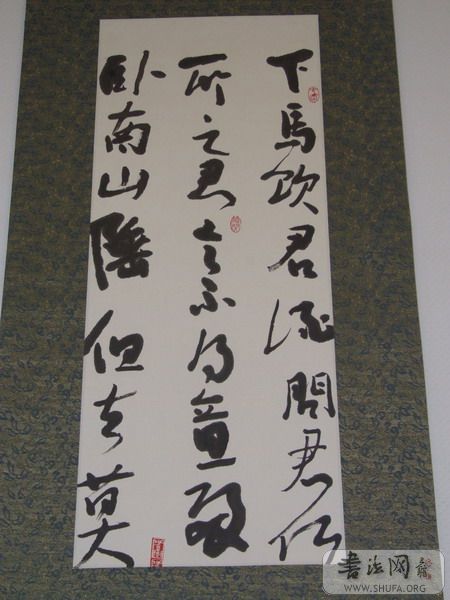 下馬飲君酒問君何
所之君言不得意歸
卧南山陲但去莫
书法网
WWW.SHUFA.ORG